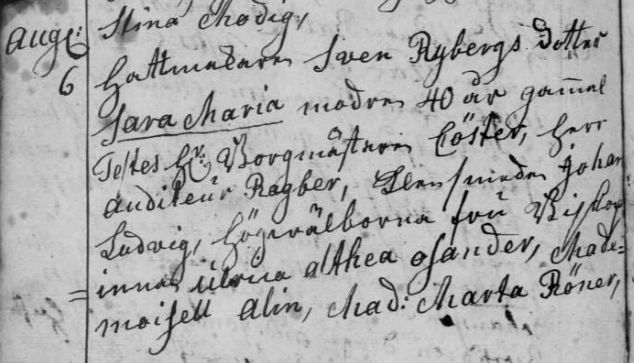 Aug: Stina Modig,
6 Hattmakaren Sven Rybergs dotter
Sara Maria modren 40 år gam̄el
Testes Hr. Borgmästaren Cöster, Herr
auditeur Ragber, Johan
Ludvig, Högvälborna fru Biskop
innan Ulrica althea Osander, Made=
moisell Alin, Mad: Marta Röner,